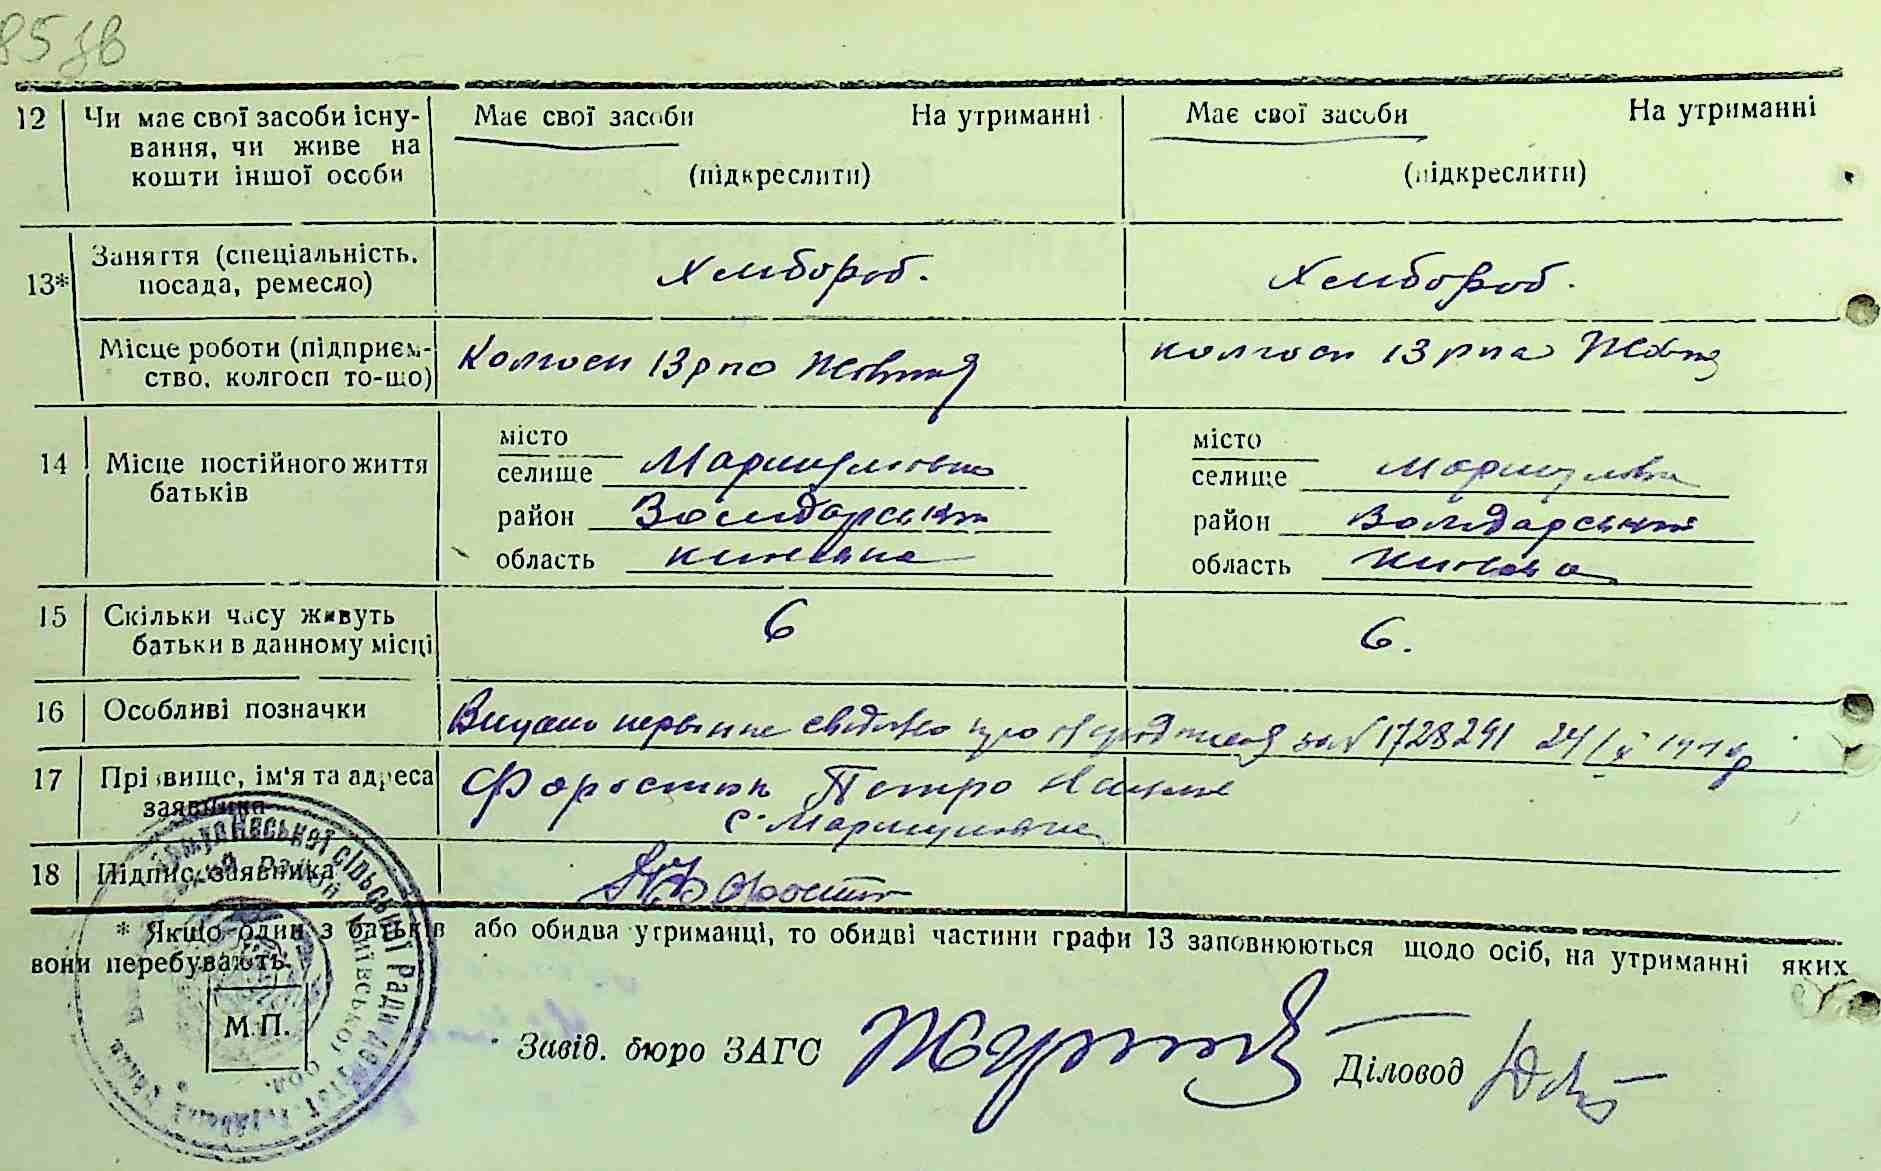 85 зв
12 Чи має свої засоби існу-
вання, чи живе на
кошти іншої особи
Має свої засоби На утриманні
(підкреслити)
Має свої засоби На утриманні
(підкреслити)
13* Заняття (спеціальність,
посада, ремесло)
Хлибороб.
Хлибороб.
Місце роботи (підприєм-
ство, колгосп то-що)
Колгосп 13 рпо Жовтня
колгосп 13 рпа Жовтня
14 Місце постійного життя
батьків
місто
селище Мармулювка
район Володарський
область київська
місто
селище Мармулювка
район Володарський
область
15 Скільки часу живуть
батьки в данному місці
6
6.
16 Особливі позначки
Видано первинне свідотво про народження за № 1728291 24/X
17 Прізвище, ім'я та адреса
заявника
Форостюк Петро
с. Мармулювка
18 Підпис заявника
* Якщо один з батьків або обидва утриманці, то обидві частини графи 13 заповнюються щодо осіб, на утриманні яких
вони перебувають.
М.П.
Завід. бюро ЗАГС
Діловод